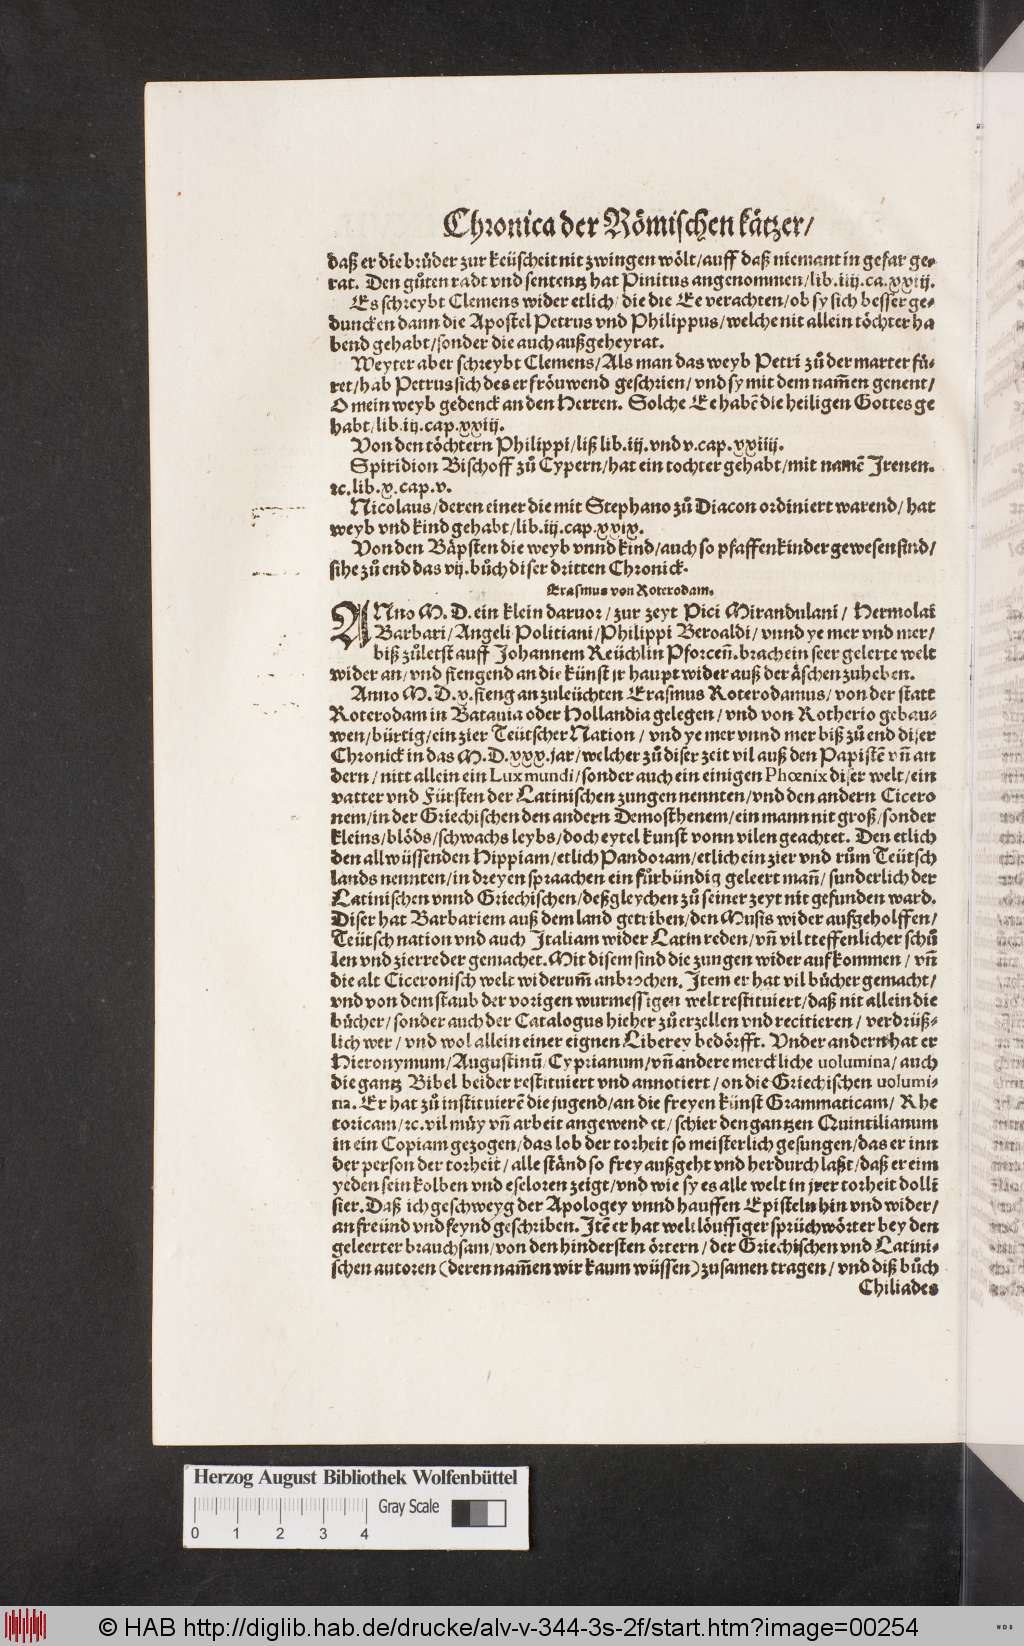 Chronica der Römischen kätzer/
daß er die brůder zur keüscheit nit zwingen wölt/auff daß niemant in gefar ge⸗
rat. Den gůten radt vnd sentентz hat Pinitus angenommen/lib.iiij.ca.xxiij.
Es schreybt Clemens wider etlich/die die Ee verachten/ob sy sich besser ge⸗
duncken dann die Apostel Petrus vnd Philippus/welche nit allein töchter ha
bend gehabt/sonder die auch außgeheyrat.
Weyter aber schreybt Clemens/Als man das weyb Petri zů der marter fů⸗
ret/hab Petrus sich des erfröuwend geschrien/vnd sy mit dem nam̃en genent/
O mein weyb gedenck an den Herren. Solche Ee habẽ die heiligen Gottes ge
habt/lib.iij.cap.xxiij.
Von den töchtern Philippi/liß lib.iij.vnd v.cap.xxiiij.
Spiridion Bischoff zů Cypern/hat ein tochter gehabt/mit namẽ Irenen.
ꝛc.lib.x.cap.v.
Nicolaus/deren einer die mit Stephano zů Diacon ordiniert warend/hat
weyb vnd kind gehabt/lib.iij.cap.xxix.
Von den Bäpsten die weyb vnnd kind/auch so pfaffenkinder gewesen sind/
sihe zů end das vij.bůch diser dritten Chronick.
Erasmus von Roterodam.
ANno M.D.ein klein daruor/zur zeyt Pici Mirandulani/Hermolai
Barbari/Angeli Politiani/Philippi Beroaldi/vnnd ye mer vnd mer/
biß zůletst auff Johannem Reüchlin Pforceñ.brach ein seer gelerte welt
wider an/vnd fiengend an die künst jr haupt wider auß der äschen zuheben.
Anno M.D.v.fieng an zuleüchten Erasmus Roterodamus/von der statt
Roterodam in Batauia oder Hollandia gelegen/vnd von Rotherio gebau⸗
wen/bürtig/ein zier Teütscher Nation/vnd ye mer vnnd mer biß zů end diser
Chronick in das M.D.xxx.jar/welcher zů diser zeit vil auß den Papistẽ vñ an
dern/nitt allein ein Lux mundi/sonder auch ein einigen Phœnix diser welt/ein
vatter vnd Fürsten der Latinischen zungen nennten/vnd den andern Cicero
nem/in der Griechischen den andern Demosthenem/ein mann nit groß/sonder
kleins/blöds/schwachs leybs/doch eytel kunst vonn vilen geachtet. Den etlich
den allwüssenden Hippiam/etlich Pandoram/etlich ein zier vnd rům Teütsch
lands nennten/in dreyen spraachen ein fürbündig geleert mañ/sunderlich der
Latinischen vnnd Griechischen/deßgleychen zů seiner zeyt nit gefunden ward.
Diser hat Barbariem auß dem land getriben/den Musis wider aufgeholffen/
Teütsch nation vnd auch Italiam wider Latin reden/vñ vil tteffenlicher schů
len vnd zierreder gemachet. Mit disem sind die zungen wider aufkommen/vñ
die alt Ciceronisch welt widerum̃ anbrochen. Item er hat vil bůcher gemacht/
vnd von dem staub der vorigen wurmessigen welt restituiert/daß nit allein die
bücher/sonder auch der Catalogus hieher zů erzellen vnd recitieren/verdrüß⸗
lich wer/vnd wol allein einer eignen Liberey bedörfft. Vnder andern hat er
Hieronymum/Augustinũ/Cyprianum/vñ andere merckliche uolumina/auch
die gantz Bibel beider restituiert vnd annotiert/on die Griechischen uolumi⸗
na. Er hat zů instituierẽ die jugend/an die freyen künst Grammaticam/Rhe
toricam/ꝛc.vil můy vñ arbeit angewendet/schier den gantzen Quintilianum
in ein Copiam gezogen/das lob der torheit so meisterlich gesungen/das er inn
der person der torheit/alle ständ so frey außgeht vnd herdurch laßt/daß er eim
yeden sein kolben vnd eseloren zeigt/vnd wie sy es alle welt in jrer torheit dolli
sier. Daß ich geschweyg der Apologey vnnd hauffen Episteln hin vnd wider/
an freünd vnd feynd geschriben. Itẽ er hat weltlöuffiger sprüchwörter bey den
geleerter brauchsam/von den hindersten örtern/der Griechischen vnd Latini⸗
schen autoren (deren nam̃en wir kaum wüssen) zusamen tragen/vnd diß bůch
Chiliades
Herzog August Bibliothek Wolfenbüttel
Gray Scale
0 1 2 3 4
© HAB http://diglib.hab.de/drucke/alv-v-344-3s-2f/start.htm?image=00254